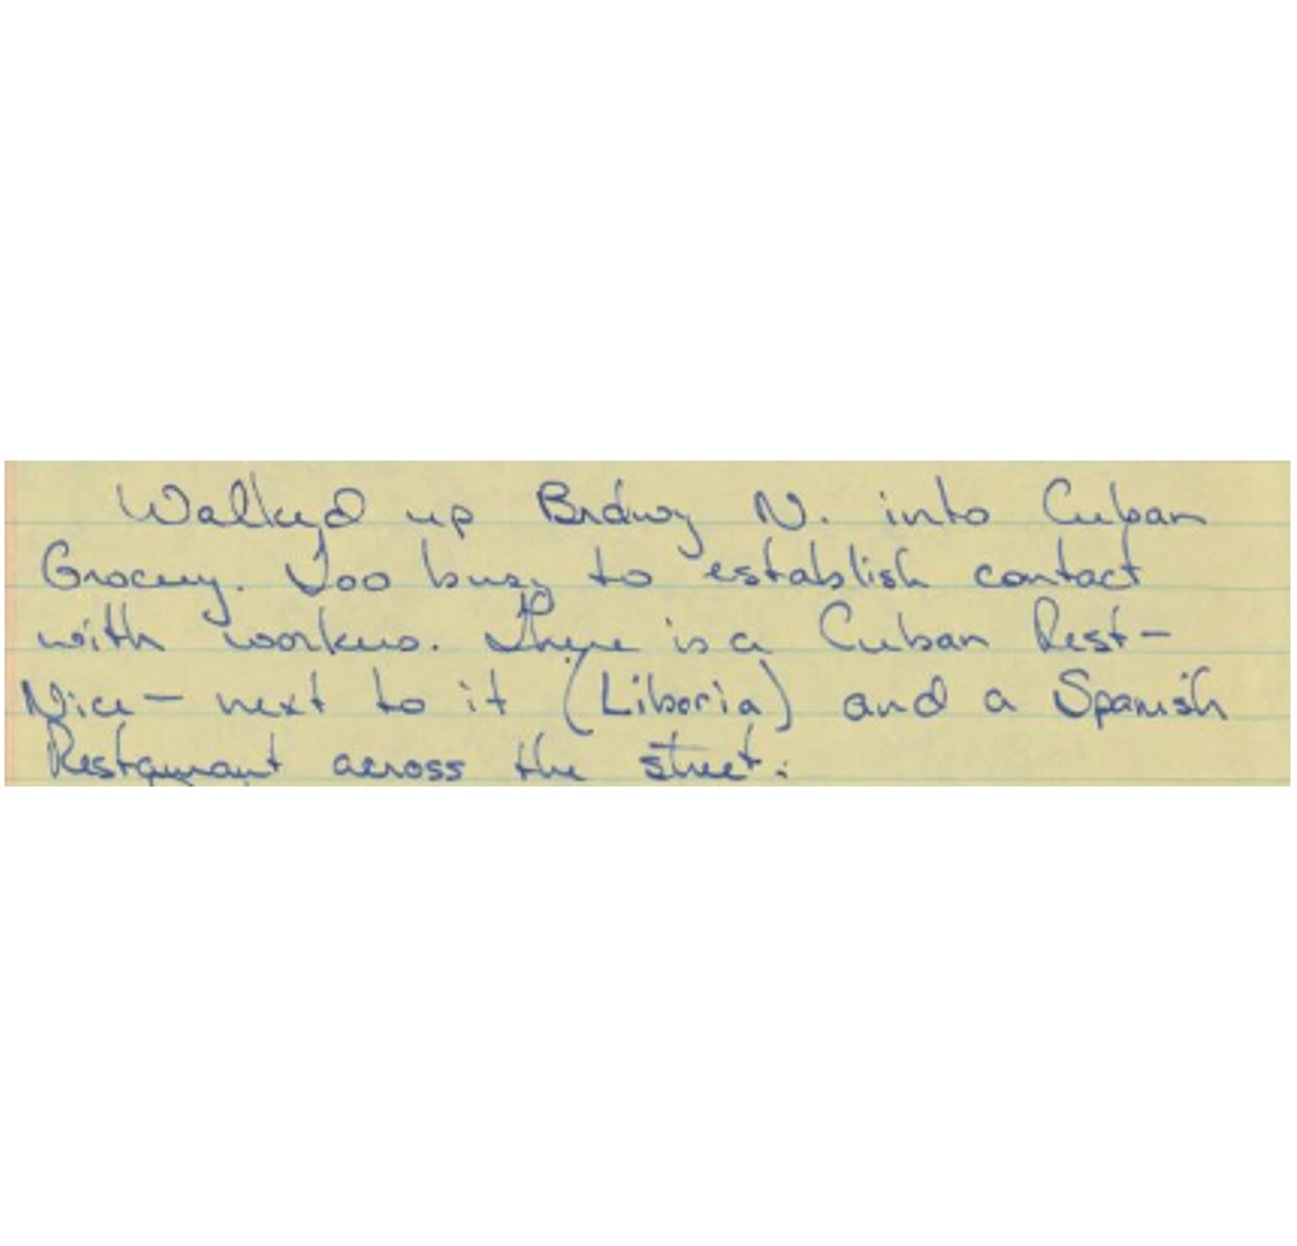 Walked up Brdwy N. into Cuban
Grocery. Too busy to establish contact
with workers. There is a Cuban Rest-
Nice- next to it (Liboria) and a Spanish
Restaurant across the street.